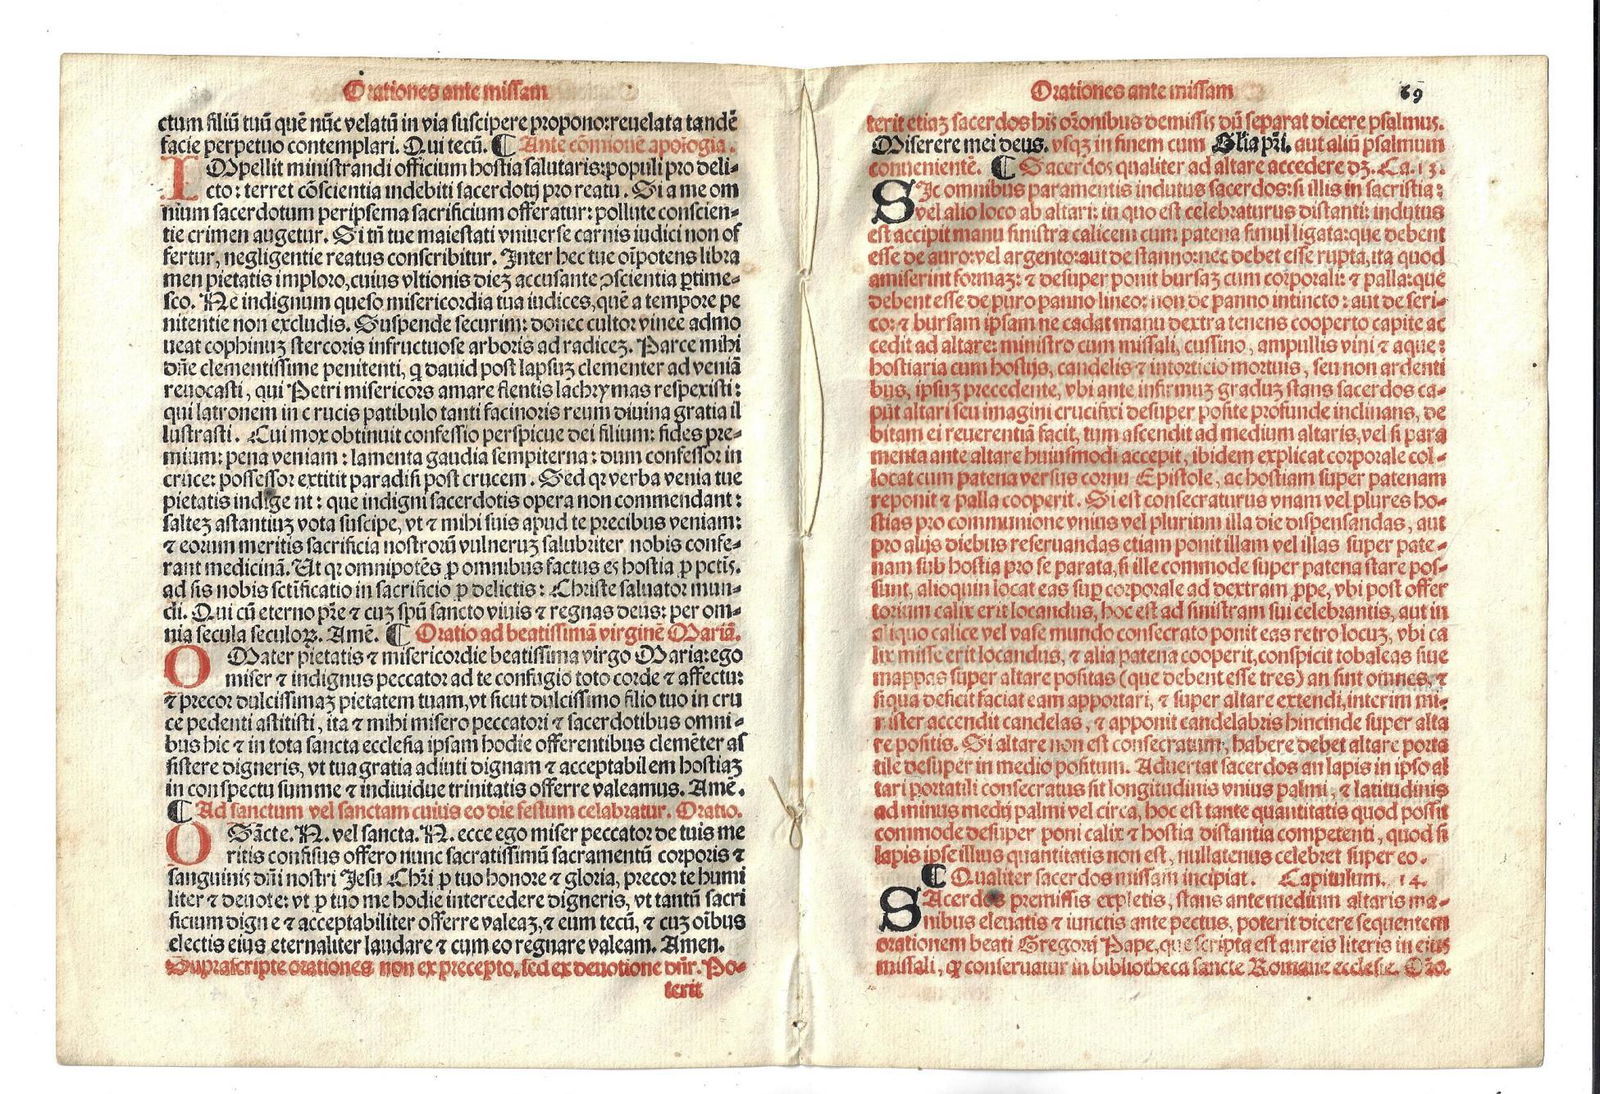 Orationes ante missam
ctum filiū tuū quē nūc velatū in via suscipere propono: reuelata tandē
facie perpetuo contemplari. Qui tecū. ¶ Ante cōmione apologia.
IMpellit ministrandi officium hostia salutaris: populi pro deli-
cto: terret cōscientia indebiti sacerdotij pro reatu. Si a me om
nium sacerdotum peripsema sacrificium offeratur: pollute conscien-
tie crimen augetur. Si tn̄ tue maiestati vniuerse carnis iudici non of
fertur, negligentie reatus conscribitur. Inter hec tue oīpotens libra
men pietatis imploro, cuius vltionis diez accusante ɔscientia ptime-
sco. Ne indignum queso misericordia tua iudices, quē a tempore pe
nitentie non excludis. Suspende securim: donec cultor vinee admo
ueat cophinuz stercoris infructuose arboris ad radicez. Parce mihi
dn̄e clementissime penitenti, q dauid post lapsuz clementer ad veniā
reuocasti, qui Petri misericors amare flentis lachrymas respexisti:
qui latronem in crucis patibulo tanti facinoris reum diuina gratia il
lustrasti. Cui mox obtinuit confessio perspicue dei filium: fides pre-
mium: pena veniam: lamenta gaudia sempiterna: dum confessor in
cruce: possessor extitit paradisi post crucem. Sed qr verba venia tue
pietatis indigent: que indigni sacerdotis opera non commendant:
saltez astantiuz vota suscipe, vt ⁊ mihi suis apud te precibus veniam:
⁊ eorum meritis sacrificia nostrorū vulneruz salubriter nobis confe-
rant medicinā. Ut qr omnipotēs ꝑ omnibus factus es hostia ꝓ pctīs.
ad sis nobis sctificatio in sacrificio ꝓ delictis: Christe saluator mun-
di. Qui cū eterno pr̄e ⁊ cuz spū sancto viuis ⁊ regnas deus: per om-
nia secula seculoꝝ. Amē. ¶ Oratio ad beatissimā virginē Mariā.
O Mater pietatis ⁊ misericordie beatissima virgo Maria: ego
miser ⁊ indignus peccator ad te confugio toto corde ⁊ affectu:
⁊ precor dulcissimaz pietatem tuam, vt sicut dulcissimo filio tuo in cru
ce pedenti astitisti, ita ⁊ mihi misero peccatori ⁊ sacerdotibus omni-
bus hic ⁊ in tota sancta ecclesia ipsam hodie offerentibus clemēter as
sistere digneris, vt tua gratia adiuti dignam ⁊ acceptabilem hostiaz
in conspectu summe ⁊ indiuidue trinitatis offerre valeamus. Amē.
¶ Ad sanctum vel sanctam cuius eo die festum celabratur. Oratio.
O Sācte. N. vel sancta. N. ecce ego miser peccator de tuis me
ritis confisus offero nunc sacratissimū sacramentū corporis ⁊
sanguinis dn̄i nostri Jesu Chr̄i ꝓ tuo honore ⁊ gloria, precor te humi
liter ⁊ deuote: vt ꝓ tuo me hodie intercedere digneris, vt tantū sacri
ficium digne ⁊ acceptabiliter offerre valeaz, ⁊ eum tecū, ⁊ cuz oībus
electis eius eternaliter laudare ⁊ cum eo regnare valeam. Amen.
Suprascripte orationes non ex precepto, sed ex deuotione dn̄r. Po-
terit
Orationes ante missam 69
terit etiaz sacerdos his or̄onibus demissis dū separat dicere psalmus.
Miserere mei deus. vsqz in finem cum Glia pr̄i, aut aliū psalmum
conuenientē. ¶ Sacerdos qualiter ad altare accedere dz. Ca. 13.
SIc omnibus paramentis indutus sacerdos: si illis in sacristia:
vel alio loco ab altari: in quo est celebraturus distanti: indutus
est accipit manu sinistra calicem cum patena simul ligata: que debent
esse de auro: vel argento: aut de stanno: nec debet esse rupta, ita quod
amiserint formaz: ⁊ desuper ponit bursaz cum corporali: ⁊ palla: que
debent esse de puro panno lineo: non de panno intincto: aut de seri-
co: ⁊ bursam ipsam ne cadat manu dextra tenens cooperto capite ac
cedit ad altare: ministro cum missali, cussino, ampullis vini ⁊ aque:
hostiaria cum hostijs, candelis ⁊ intorticio mortuis, seu non ardenti
bus, ipsuz precedente, vbi ante infirmuz graduz stans sacerdos ca-
put altari seu imagini crucifixi desuper posite profunde inclinans, de
bitam ei reuerentiā facit, tum ascendit ad medium altaris, vel si para
menta ante altare huiusmodi accepit, ibidem explicat corporale col-
locat cum patena versus cornu Epistole, ac hostiam super patenam
reponit ⁊ palla cooperit. Si est consecraturus vnam vel plures ho-
stias pro communione vnius vel plurium illa die dispensandas, aut
pro alijs diebus reseruandas etiam ponit illam vel illas super pate-
nam sub hostia pro se parata, si ille commode super patena stare pos-
sunt, alioquin locat eas sup corporale ad dextram ꝓpe, vbi post offer
torium calix erit locandus, hoc est ad sinistram sui celebrantis, aut in
aliquo calice vel vase mundo consecrato ponit eas retro locuz, vbi ca
lix misse erit locandus, ⁊ alia patena cooperit, conspicit tobaleas siue
mappas super altare positas (que debent esse tres) an sint omnes, ⁊
si qua deficit faciat eam apportari, ⁊ super altare extendi, interim mi-
nister accendit candelas, ⁊ apponit candelabris hincinde super alta
re positis. Si altare non est consecratum, habere debet altare porta
tile desuper in medio positum. Aduertat sacerdos an lapis in ipso al
tari portatili consecratus sit longitudinis vnius palmi, ⁊ latitudinis
ad minus medij palmi vel circa, hoc est tante quantitatis quod possit
commode desuper poni calix ⁊ hostia distantia competenti, quod si
lapis ipse illius quantitatis non est, nullatenus celebret super eo.
¶ Qualiter sacerdos missam incipiat. Capitulum. 14.
SAcerdos premissis expletis, stans ante medium altaris ma-
nibus eleuatis ⁊ iunctis ante pectus, poterit dicere sequentem
orationem beati Gregorij Pape, que scripta est aureis literis in eius
missali, qz conseruatur in bibliotheca sancte Romane ecclesie. Or̄o.